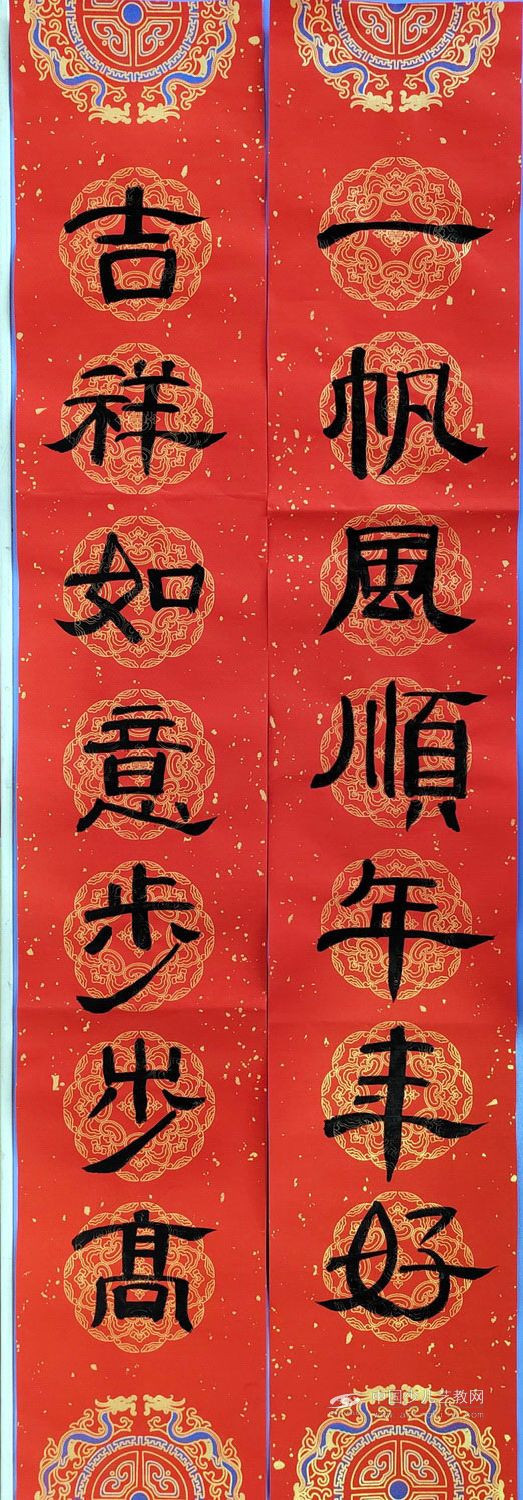 一帆風順年年好
吉祥如意步步髙
中国少儿艺教网